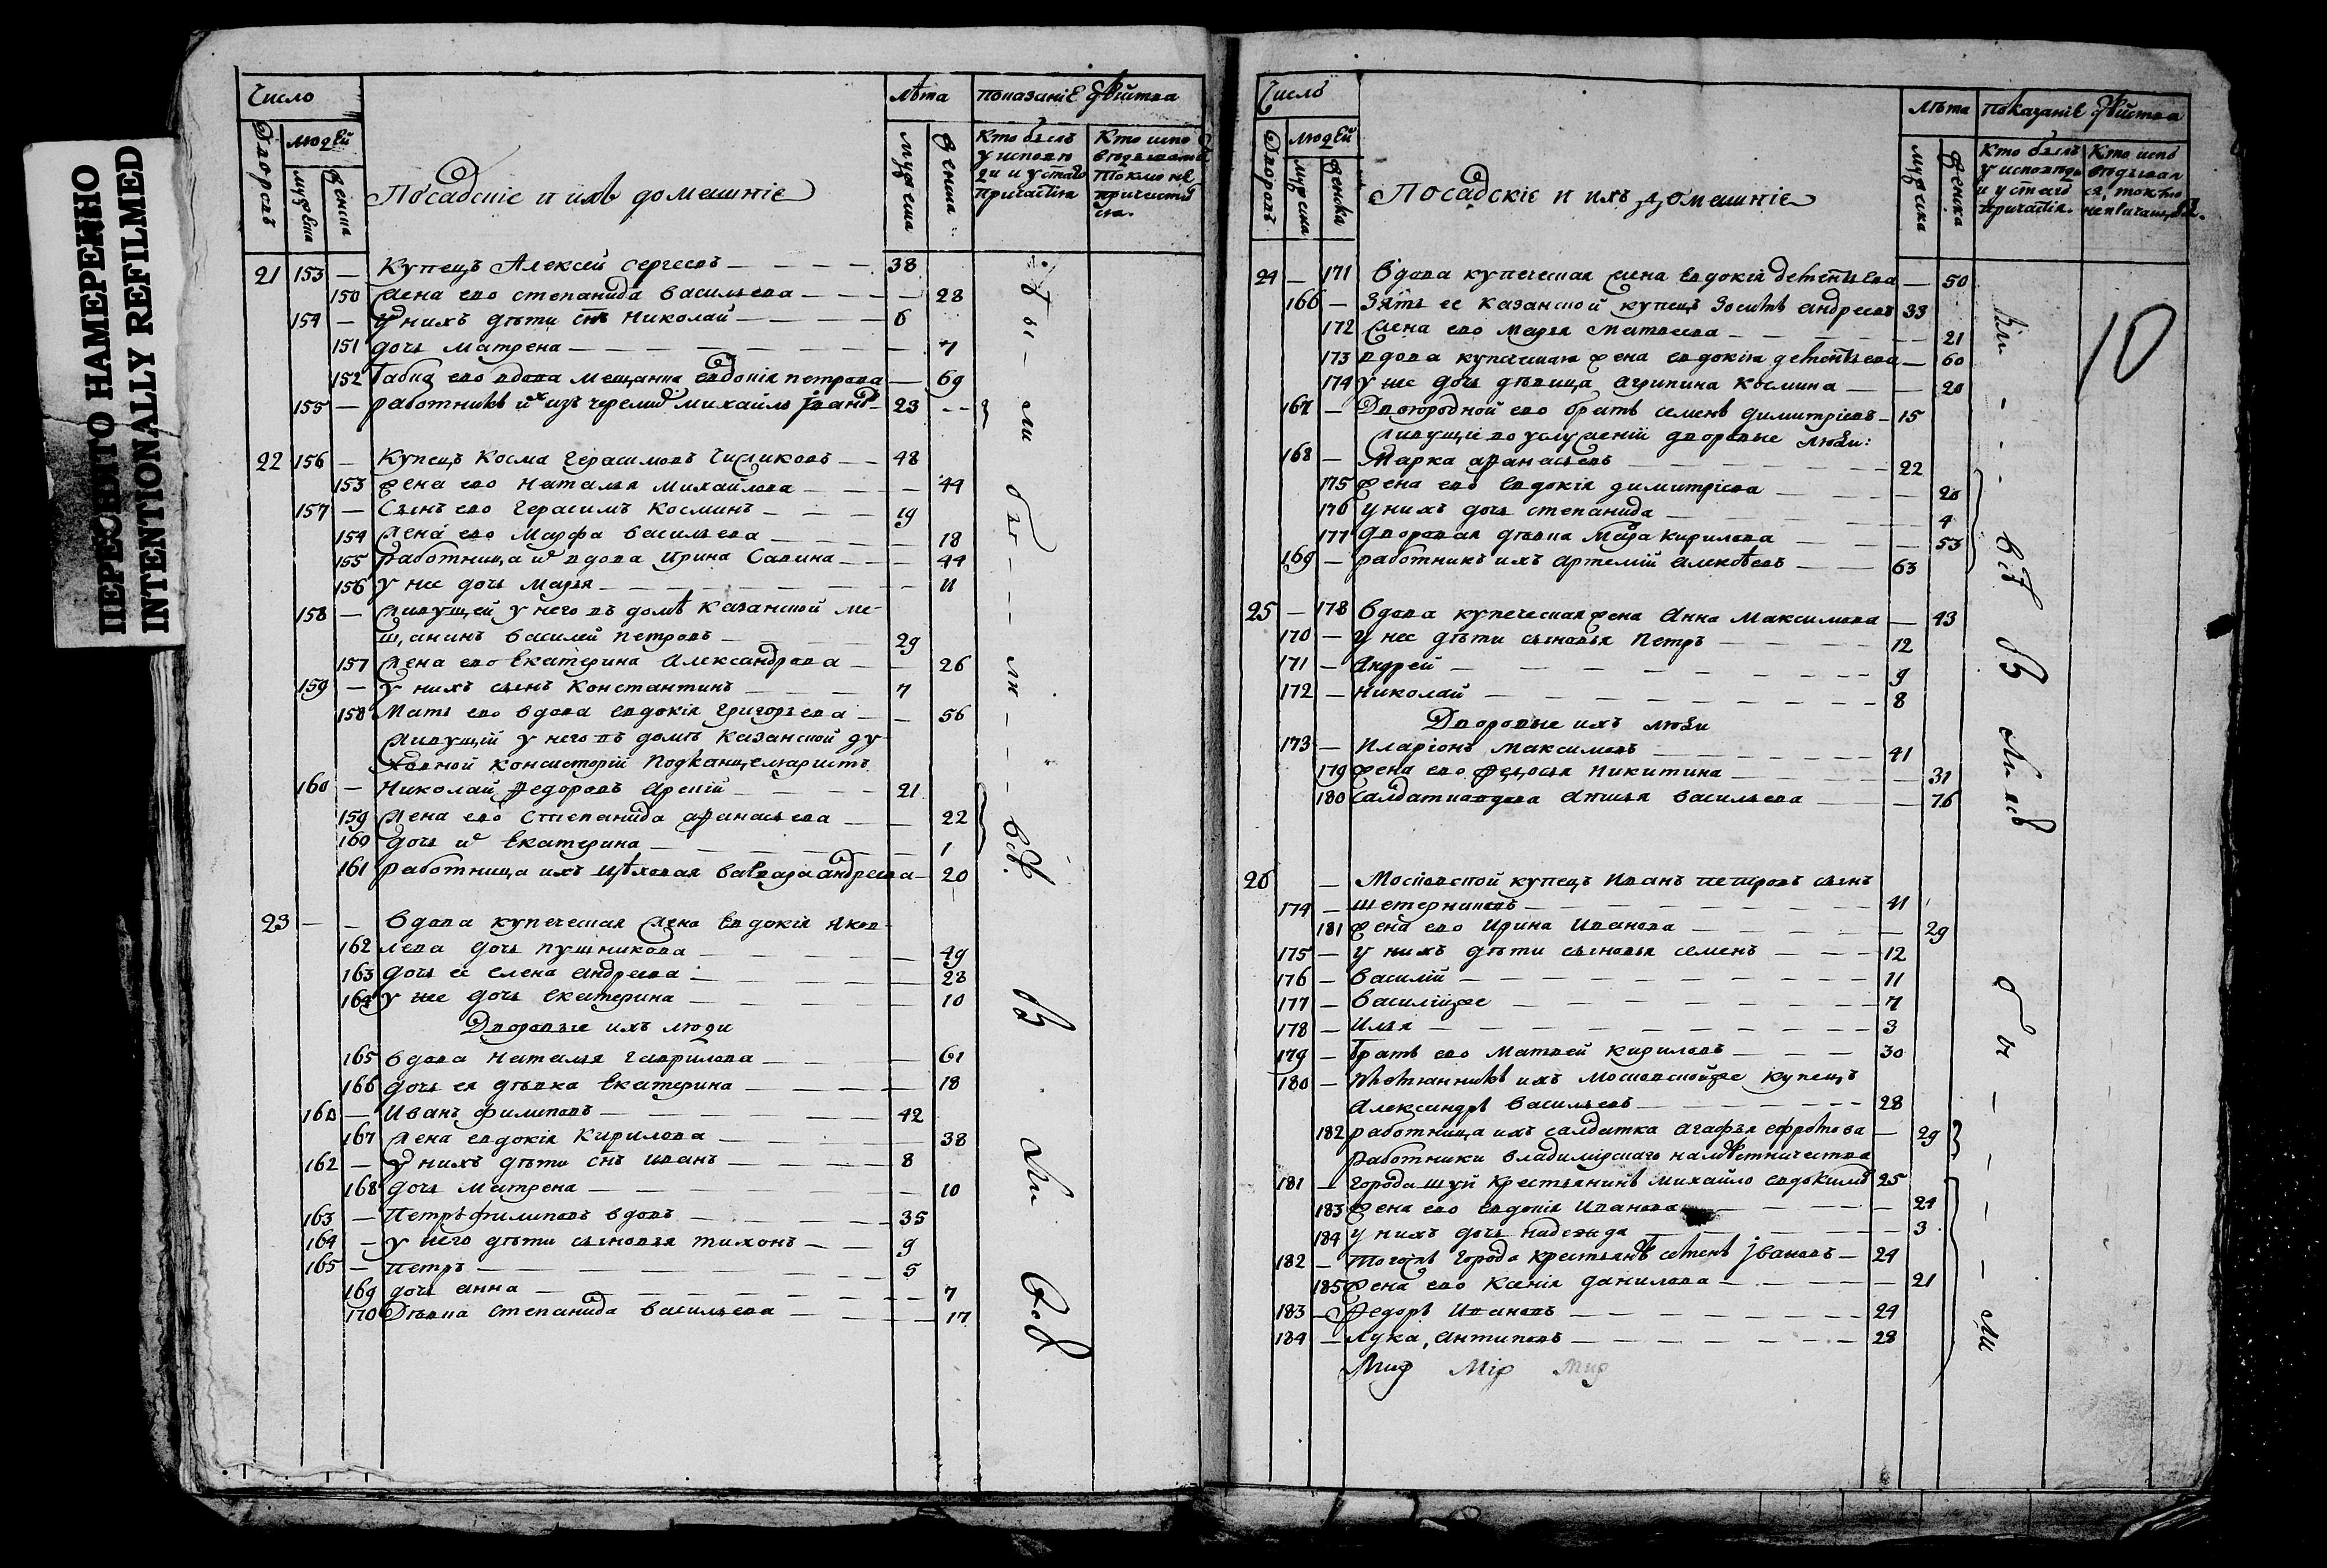 ПЕРЕСНЯТО НАМЕРЕННО
INTENTIONALLY REFILMED
Число
Дворовъ
людей
мужеска
женска
Посадскіе и ихъ домашніе
лѣта
мужеска
женска
показаніе действа
Кто былъ у исповеди и у стаго причастія
Кто исповедывался токмо не причастился
21 153 — Купецъ Алексей Сергеевъ — 38
150 жена ево степанида васильева — 28
154 — у нихъ дѣти снъ Николай — 6
151 дочь матрена — 7
152 бабка ево вдова мещанка евдокія петрова — 69
155 — работникъ ихъ изъ черемисъ михайло Iвановъ 23
22 156 — Купецъ Косма Герасимовъ Чижиковъ — 48
153 жена ево наталья михайлова — 44
157 — Сынъ ево Герасимъ Косминъ — 19
154 жена ево марфа васильева — 18
155 работница ихъ вдова ирина Савина — 44
156 у нее дочь марья — 11
158 — живущей у него въ домѣ казанской ме-
щанинъ василей петровъ — 29
157 жена ево Екатерина Александрова — 26
159 — у нихъ сынъ Константинъ — 7
158 мать ево вдова евдокія григорьева — 56
живущій у него въ домѣ казанской ду-
ховной консисторіи подканцеляристъ
160 — Николай федоровъ Арскій — 21
159 жена ево Степанида афанасьева — 22
160 дочь их Екатерина — 1
161 работница ихъ цѣховая варвара андреева — 20
23 — — вдова купеческая жена Евдокія Яков-
162 лева дочь пушникова — 49
163 дочь ее елена андреева — 28
164 у нее дочь екатерина — 10
Дворовые ихъ люди
165 вдова наталья гаврилова — 61
166 дочь ея дѣвка Екатерина — 18
160 — Иванъ филиповъ — 42
167 жена евдокія Кирилова — 38
162 — у нихъ дѣти снъ иванъ — 8
168 дочь матрена — 10
163 — Петръ филиповъ вдовъ — 35
164 — у него дѣти сыновья тихонъ — 9
165 — петръ — 5
169 дочь анна — 7
170 Дѣвка степанида васильева — 17
Число
Дворовъ
людей
мужеска
женска
Посадскіе и ихъ домашніе
лѣта
мужеска
женска
показаніе действа
Кто былъ у исповеди и у стаго причастія
Кто исповедывался, токмо не причащался.
10
24 — 171 вдова купеческая жена евдокія дементьева — 50
166 — Зять ее казанской купецъ Зосимъ андреевъ 33
172 жена ево марья матвеева — 21
173 вдова купеческая жена евдокія дементьева — 60
174 у нее дочь дѣвица агрипина космина — 20
167 — Двоюродной ево братъ семенъ димитріевъ — 15
живущіе во услуженіи дворовые люди:
168 — марка афанасьевъ — 22
175 жена ево евдокія димитріева — 20
176 у нихъ дочь степанида — 4
177 дворовая дѣвка марфа Кирилова — 53
169 — работникъ ихъ артемій алексѣевъ — 63
25 — 178 вдова купеческая жена Анна Максимова — 43
170 — у нее дѣти сыновья Петръ — 12
171 — Андрей — 9
172 — николай — 8
Дворовые ихъ люди
173 — Иларіонъ Максимовъ — 41
179 жена ево федосья Никитина — 31
180 салдатка вдова Анисья васильева — 76
26 — Московской купецъ Иванъ петровъ сынъ
174 — шетерниковъ — 41
181 жена ево Ирина Иванова — 29
175 — у нихъ дѣти сыновья семенъ — 12
176 — василій — 11
177 — василій же — 7
178 — Илья — 3
179 — братъ ево Матвей Кириловъ — 30
180 — ихъ московской же купецъ
Александръ васильевъ — 28
182 работница ихъ салдатка агафья ефремова — 29
работники владимірскаго намѣстничества
181 — города шуи крестьянинъ михайло евдокимовъ 25
183 жена ево евдокія Иванова — 24
184 у нихъ дочь надежда — 3
182 — тогожъ города крестьянинъ семенъ Iвановъ — 24
185 жена ево Ксенія данилова — 21
183 — федоръ Ивановъ — 24
184 — лука, антиповъ — 28